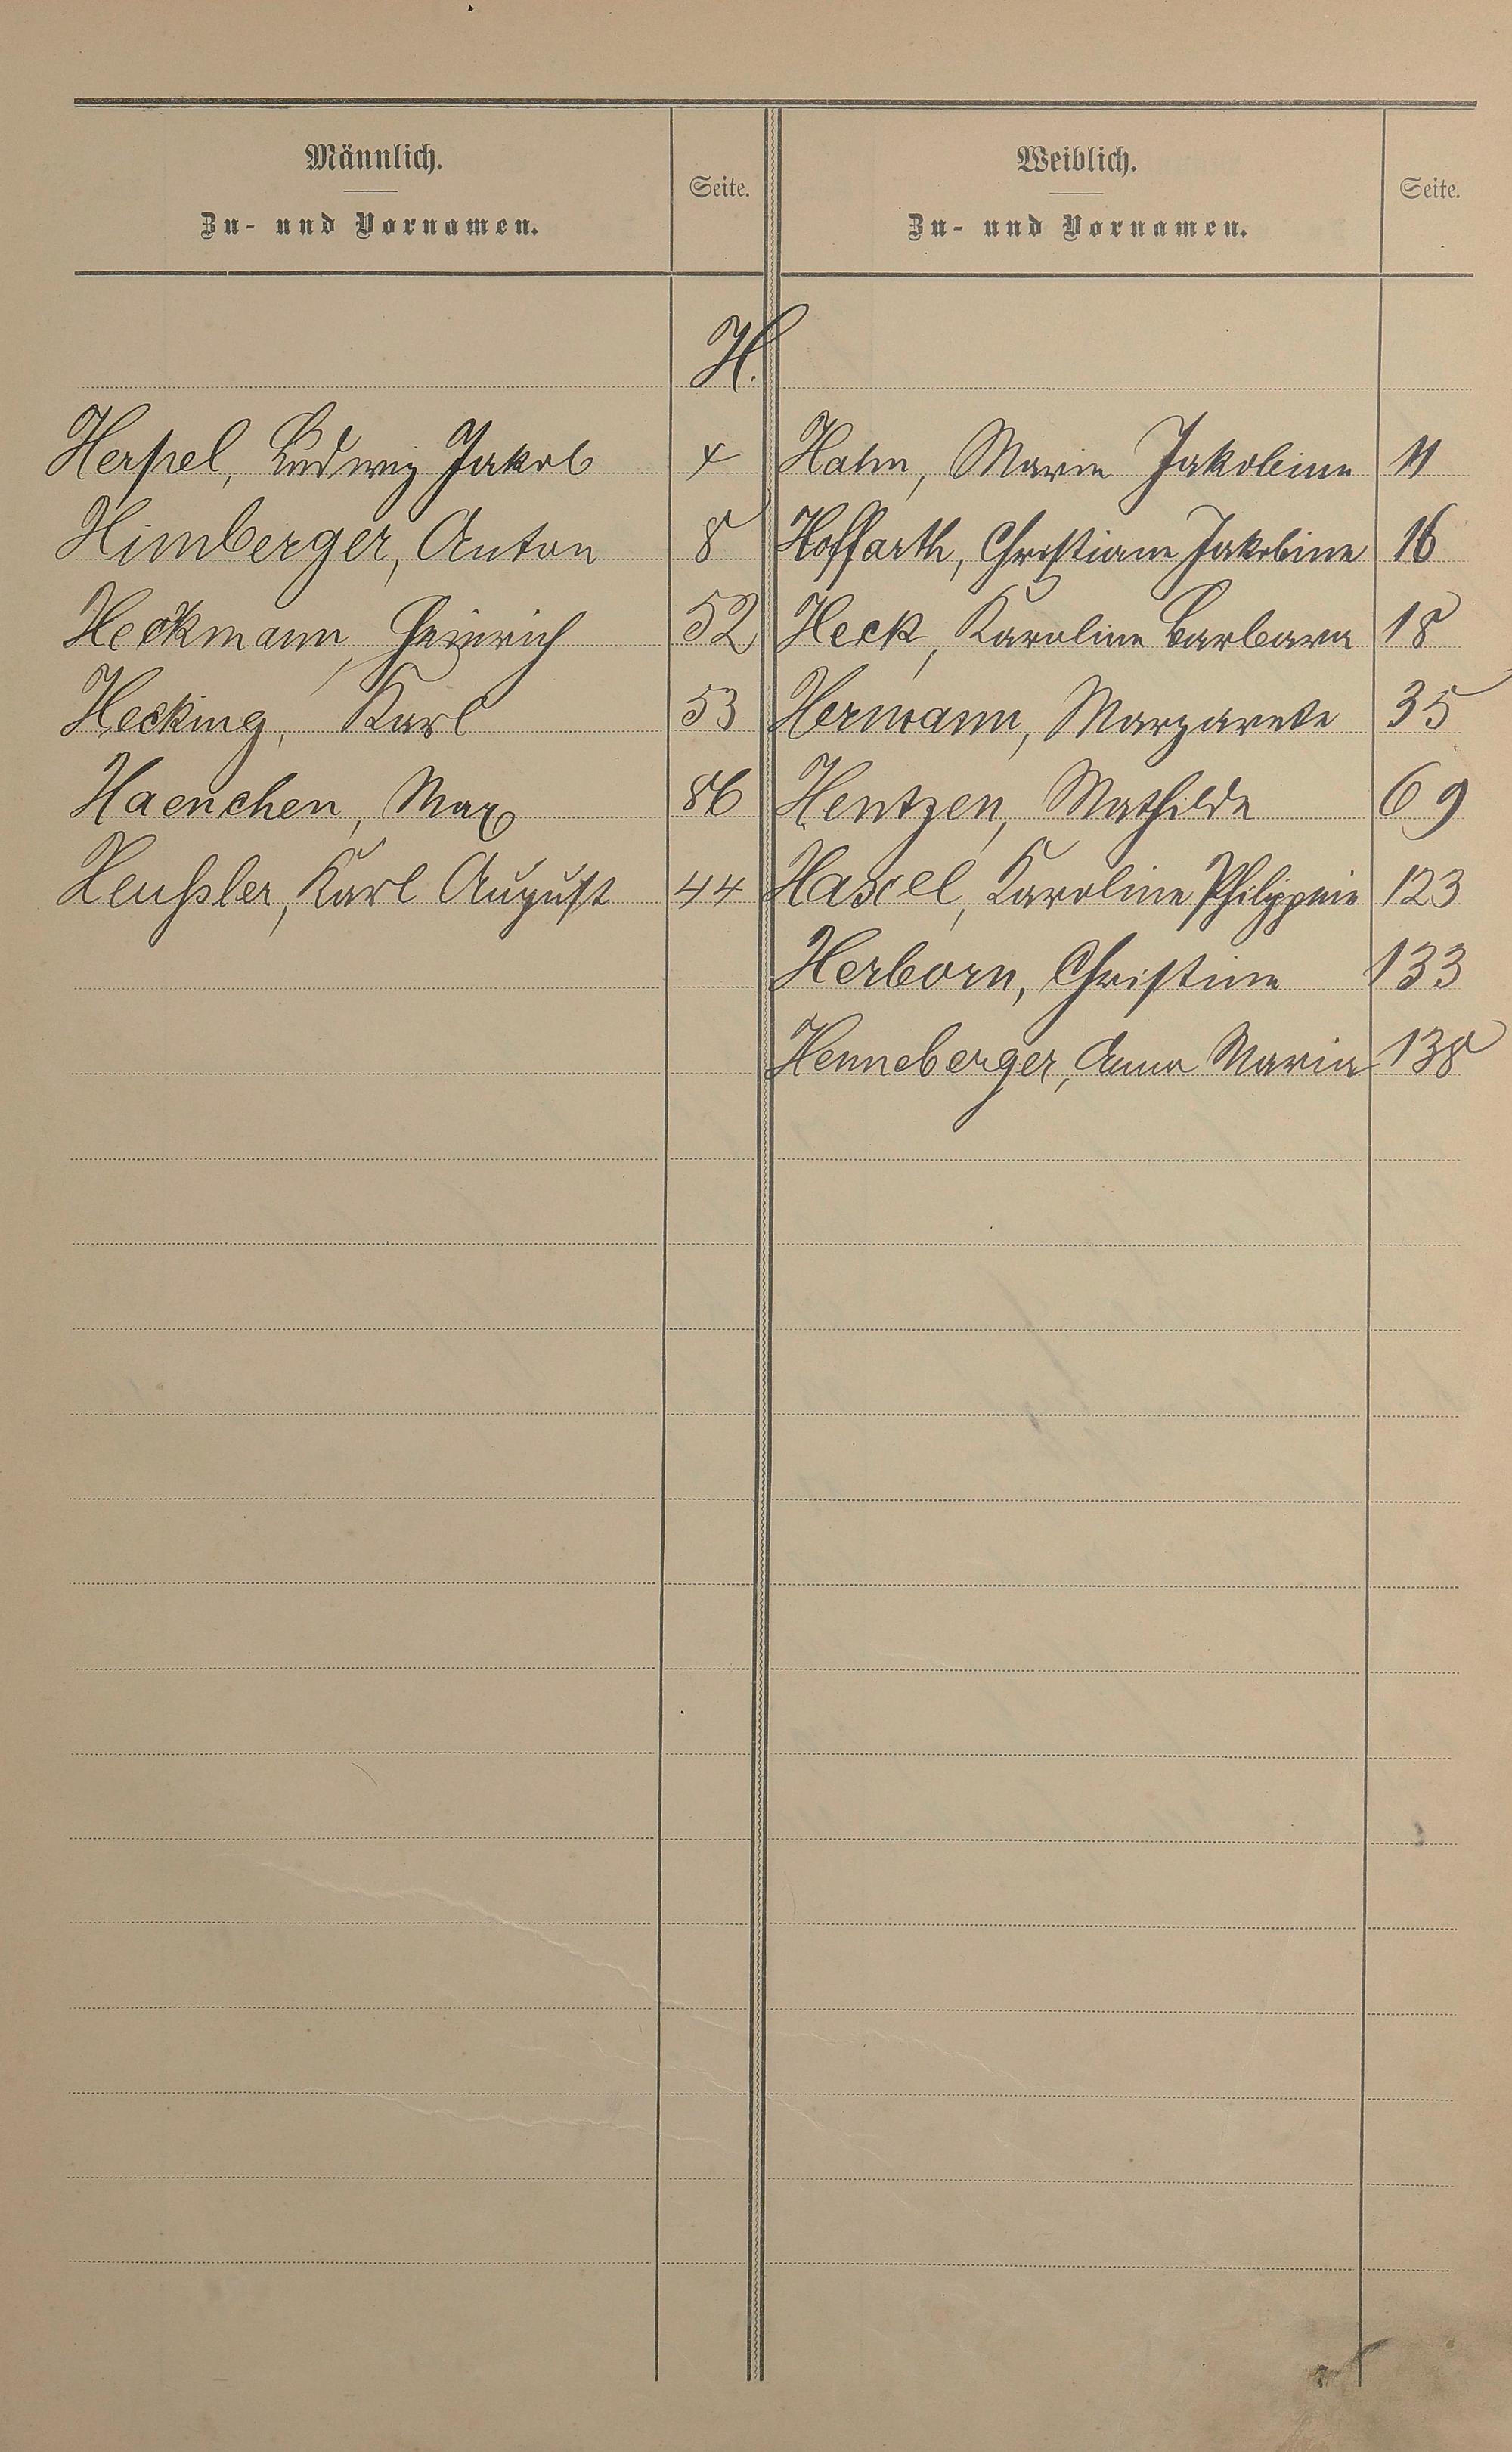 Männlich.
Zu- und Vornamen.
Seite.
Weiblich.
Zu- und Vornamen.
Seite.
H.
Herpel, Ludwig Jakob 4 Hahn, Marie Jakobine 11
Himberger, Anton 8 Hoffarth, Christiane Jakobine 16
Heckmann, Heinrich 52 Heck, Karoline Barbara 18
Hecking, Karl 53 Hermann, Margarete 35
Haenchen, Max 86 Hentzen, Mathilde 69
Heußler, Karl August 44 Hassel, Karoline Philippine 123
Herborn, Christine 133
Henneberger, Anna Maria 138